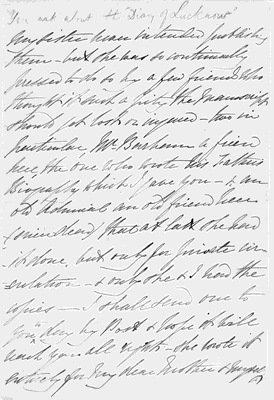 You ask about the "Diary of Lucknow"
My Sister never intended publishing
them - but she was so continually
pressed to do so by a few friends who
thought it such a pity the manuscript
should be lost or injured - two in
particular Mr Burham a friend
here, the one who wrote his Father's
Biography which I gave you - & an
old Admiral an old friend here
(since dead) that at last she had
it done, but only for private cir-
culation - & only she & I had the
copies - I shall send one to
you by Post & hope it will
reach you all right - she wrote it
entirely for my dear Mother & myself